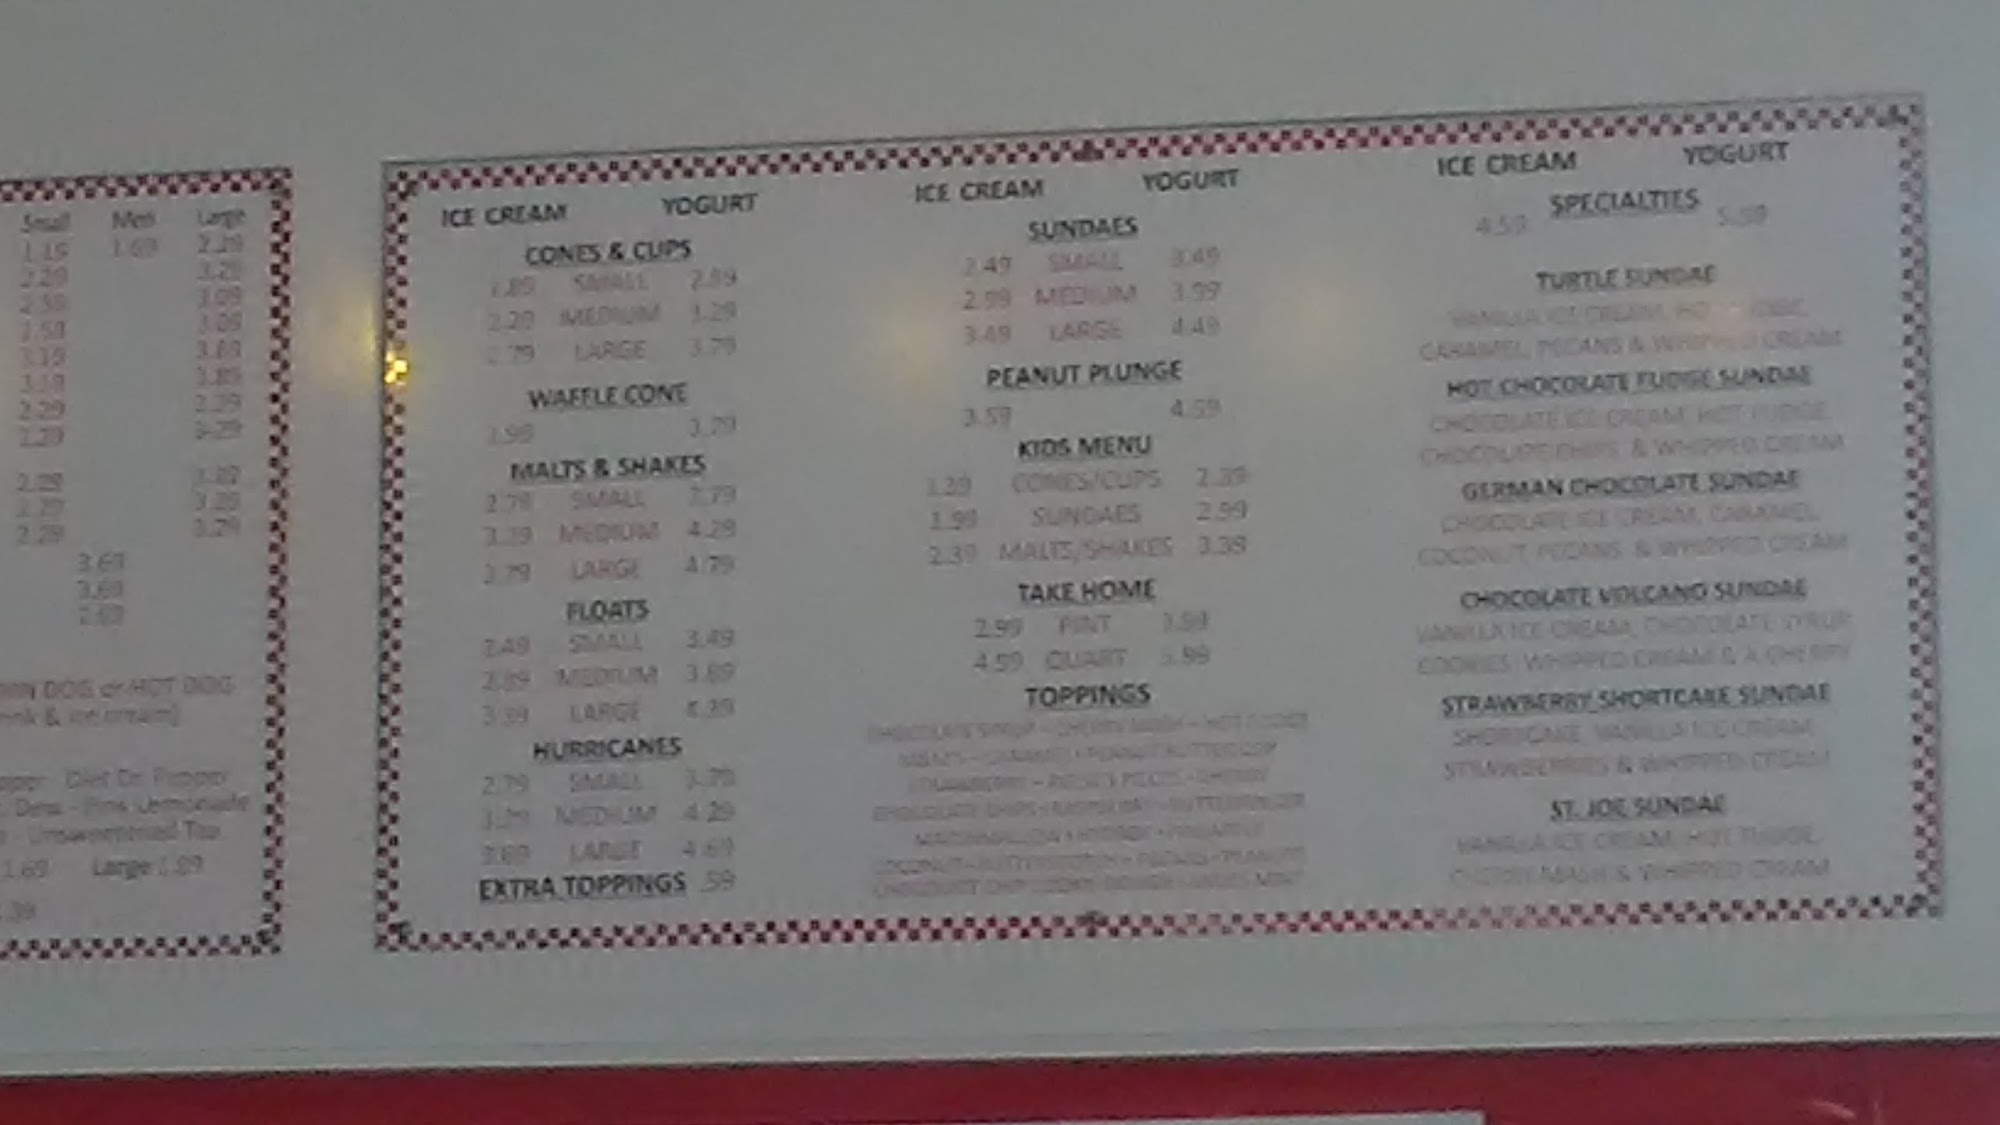 Small Med Large
1.19 1.69 2.29
2.29 3.29
2.59 3.09
3.09
3.19 3.89
3.89
2.29 2.29
3.29
2.29
3.29
2.29 3.29
3.69
3.69
2.69
DOG or HOT DOG
& ice cream)
Diet Dr. Pepper
Dew - Pink Lemonade
- Unsweetened Tea
1.69 Large 1.89
.39
ICE CREAM YOGURT
CONES & CUPS
1.89 SMALL 2.89
2.29 MEDIUM 3.29
2.79 LARGE 3.79
WAFFLE CONE
3.79
MALTS & SHAKES
2.79 SMALL 3.79
3.29 MEDIUM 4.29
3.79 LARGE 4.79
FLOATS
2.49 SMALL 3.49
2.89 MEDIUM 3.89
3.39 LARGE 4.39
HURRICANES
2.79 SMALL 3.79
3.29 MEDIUM 4.29
3.69 LARGE 4.69
EXTRA TOPPINGS .59
ICE CREAM YOGURT
SUNDAES
2.49 SMALL 3.49
2.99 MEDIUM 3.99
3.49 LARGE 4.49
PEANUT PLUNGE
3.59 4.59
KIDS MENU
1.39 CONES/CUPS 2.39
1.99 SUNDAES 2.99
2.39 MALTS/SHAKES 3.39
TAKE HOME
2.99 PINT 3.99
4.99 QUART 5.99
TOPPINGS
CHOCOLATE SYRUP - CHERRY MASH - HOT FUDGE
CARAMEL - PEANUT BUTTER CUP
STRAWBERRY - REESE'S PIECES - CHERRY
CHOCOLATE CHIPS - RASPBERRY - BUTTERFINGER
MARSHMALLOW - PINEAPPLE
COCONUT - BUTTERSCOTCH - PECANS - PEANUTS
CHOCOLATE CHIP COOKIE DOUGH - ANDES MINT
ICE CREAM YOGURT
SPECIALTIES
4.59 5.59
TURTLE SUNDAE
VANILLA ICE CREAM, HOT FUDGE,
CARAMEL, PECANS & WHIPPED CREAM
HOT CHOCOLATE FUDGE SUNDAE
CHOCOLATE ICE CREAM, HOT FUDGE,
CHOCOLATE CHIPS & WHIPPED CREAM
GERMAN CHOCOLATE SUNDAE
CHOCOLATE ICE CREAM, CARAMEL,
COCONUT, PECANS & WHIPPED CREAM
CHOCOLATE VOLCANO SUNDAE
VANILLA ICE CREAM, CHOCOLATE SYRUP,
COOKIES, WHIPPED CREAM & A CHERRY
STRAWBERRY SHORTCAKE SUNDAE
SHORTCAKE, VANILLA ICE CREAM,
STRAWBERRIES & WHIPPED CREAM
ST. JOE SUNDAE
VANILLA ICE CREAM, HOT FUDGE,
CHERRY MASH & WHIPPED CREAM